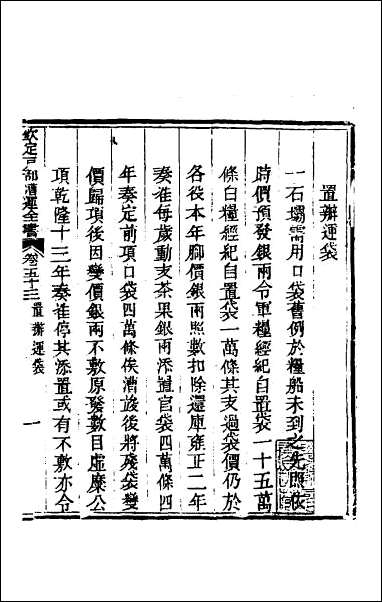 置辦運袋
一石壩需用口袋舊例於糧船未到之先照依
時價預發銀兩令軍糧經紀自置袋一十五萬
條白糧經紀自置袋一萬條其支過袋價仍於
各役本年腳價銀兩照數扣除還庫雍正二年
奏准每歲動支茶果銀兩添置官袋四萬條四
年奏定前項口袋四萬條俟漕竣後將殘袋變
價歸項後因變價銀兩不敷原發數目虛糜公
項乾隆十三年奏准停其添置或有不敷亦令
欽定戶部漕運全書 卷五十三 置辦運袋 一